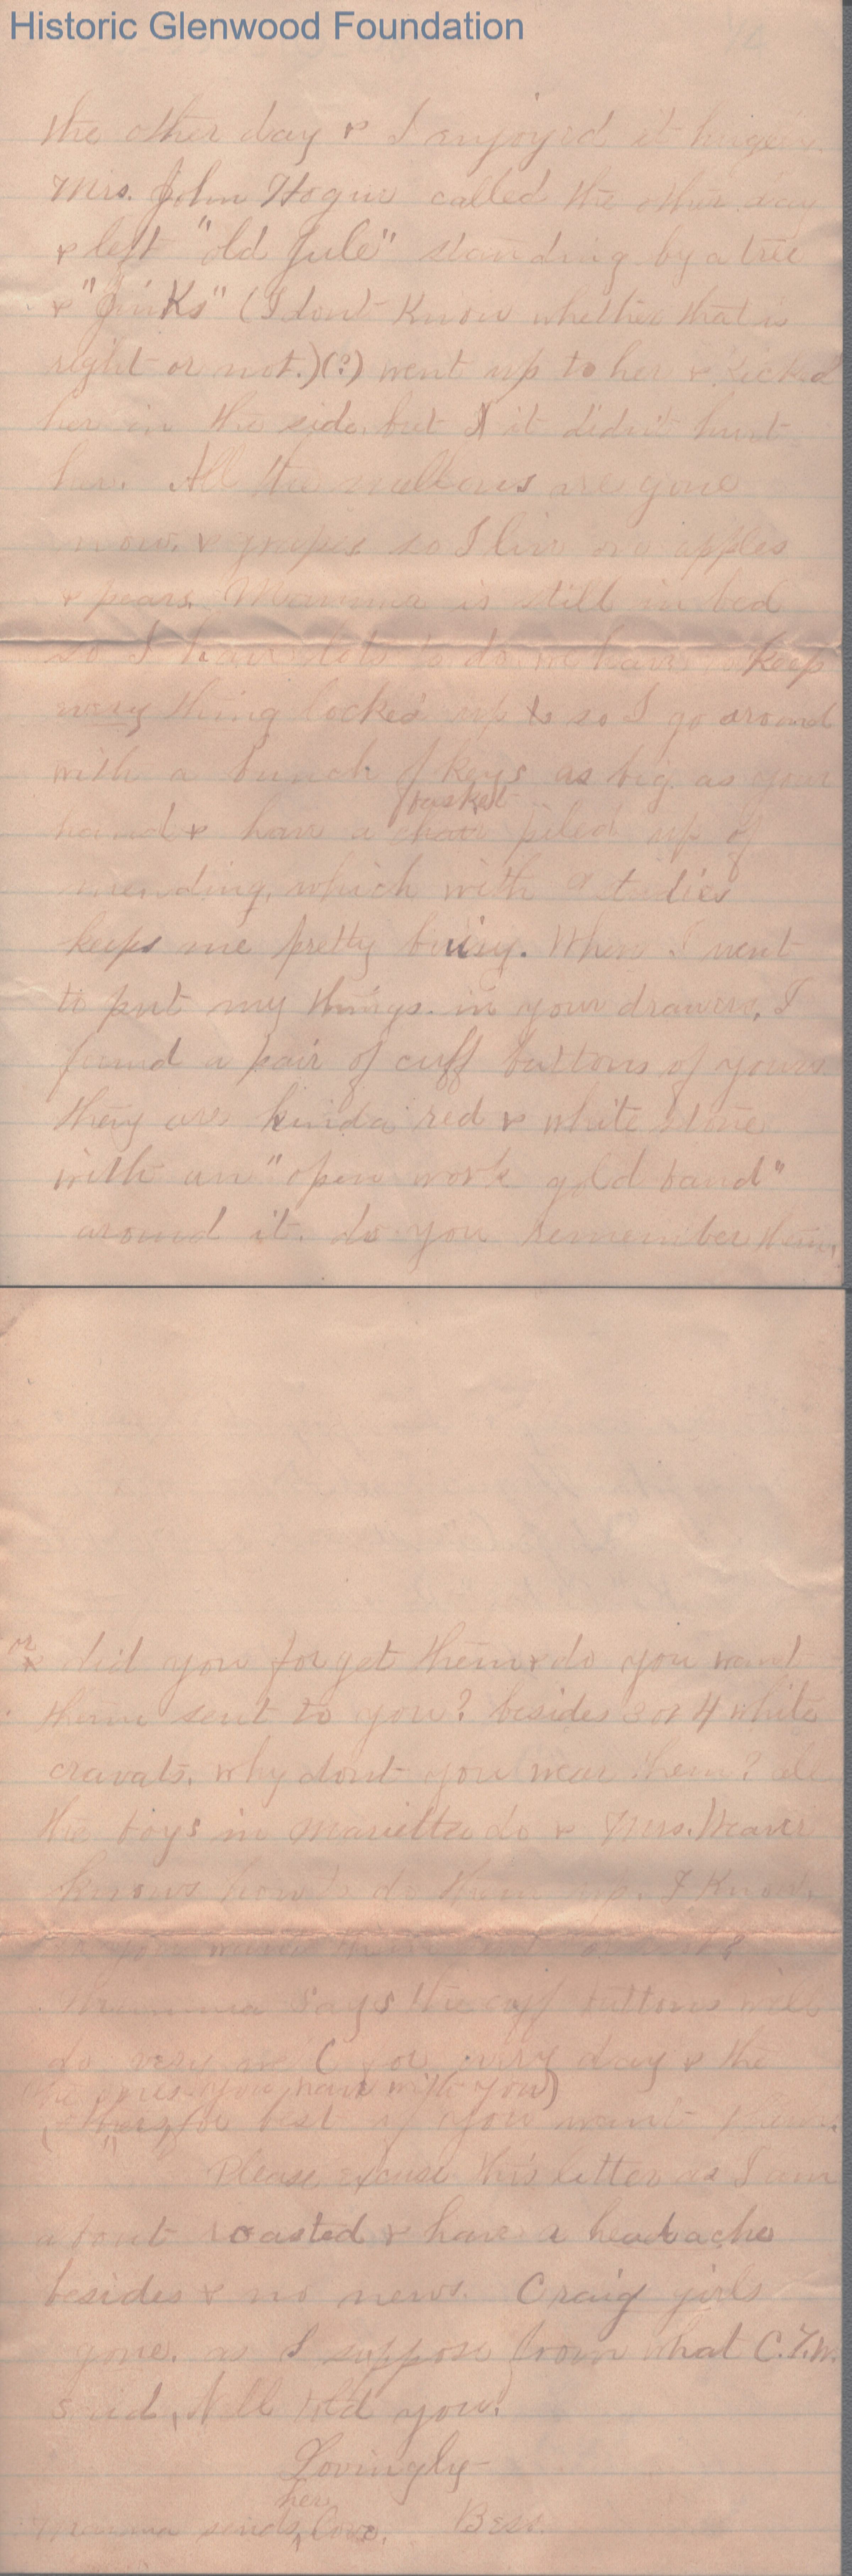 Historic Glenwood Foundation
the other day & I enjoyed it hugely.
Mrs. John Hogue called the other day
& left "old Jule" standing by a tree
& "Jinks" (I dont know whether that is
right or not.)(?) went up to her & kicked
her in the side, but it didn't hurt
her. All the mellons are gone
now, & grapes so I live on apples
& pears. Mamma is still in bed
so I have lots to do we have to keep
every thing locked up & so I go around
with a bunch of keys as big as your
basket
hand & have a chair piled up of
mending, which with studies
keeps me pretty busy. When I went
to put my things in your drawers, I
found a pair of cuff buttons of yours
they are kinda red & white stone
with an "open work gold band"
around it. do you remember them,
or
& did you forget them & do you want
them sent to you? besides 3 or 4 white
cravats, why dont you wear them? all
the boys in Marietta do & Mrs. Weaver
knows how to do them up. I know.
do you want them sent
Mamma says the cuff buttons will
do very well for every day & the
(the ones you have with you)
others for best if you want them.
Please excuse this letter as I am
about roasted & have a headache
besides & no news. Craig girls
gone, as I suppose from what C.F.W.
said, Nell told you.
Lovingly
her
Mamma sends love. Bess.